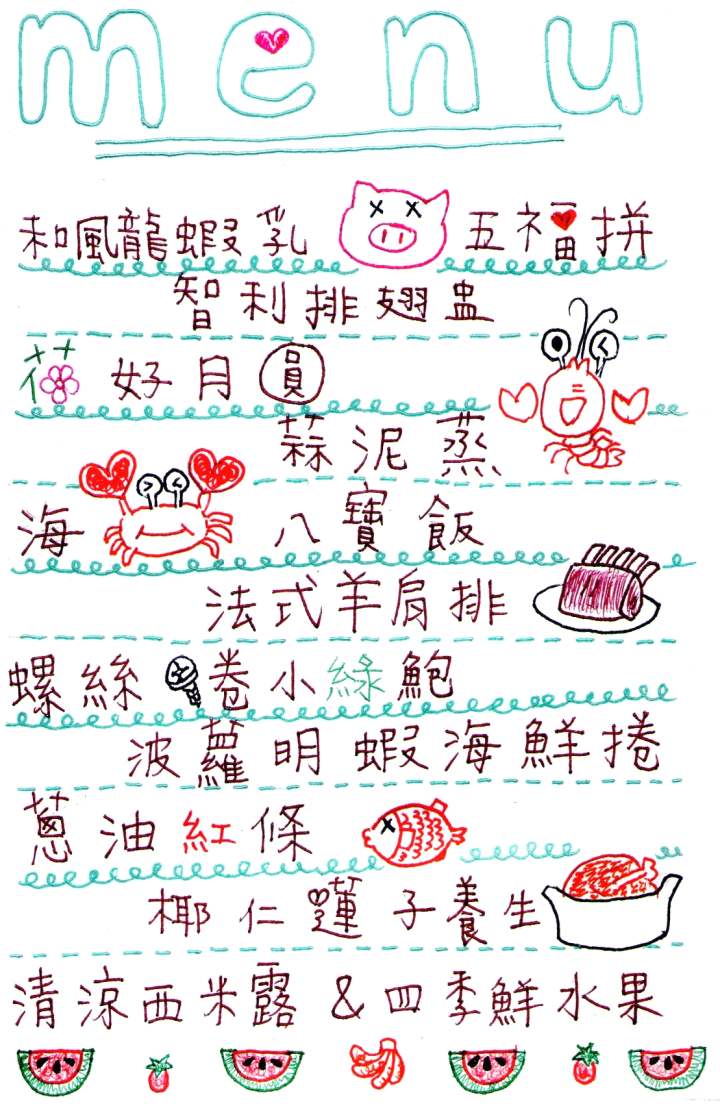 menu
和風龍蝦乳 五福拼
智利排翅盅
花好月圓
蒜泥蒸
海 八寶飯
法式羊肩排
螺絲卷小綠鮑
波蘿明蝦海鮮捲
蔥油紅條
椰仁蓮子養生
清涼西米露 & 四季鮮水果